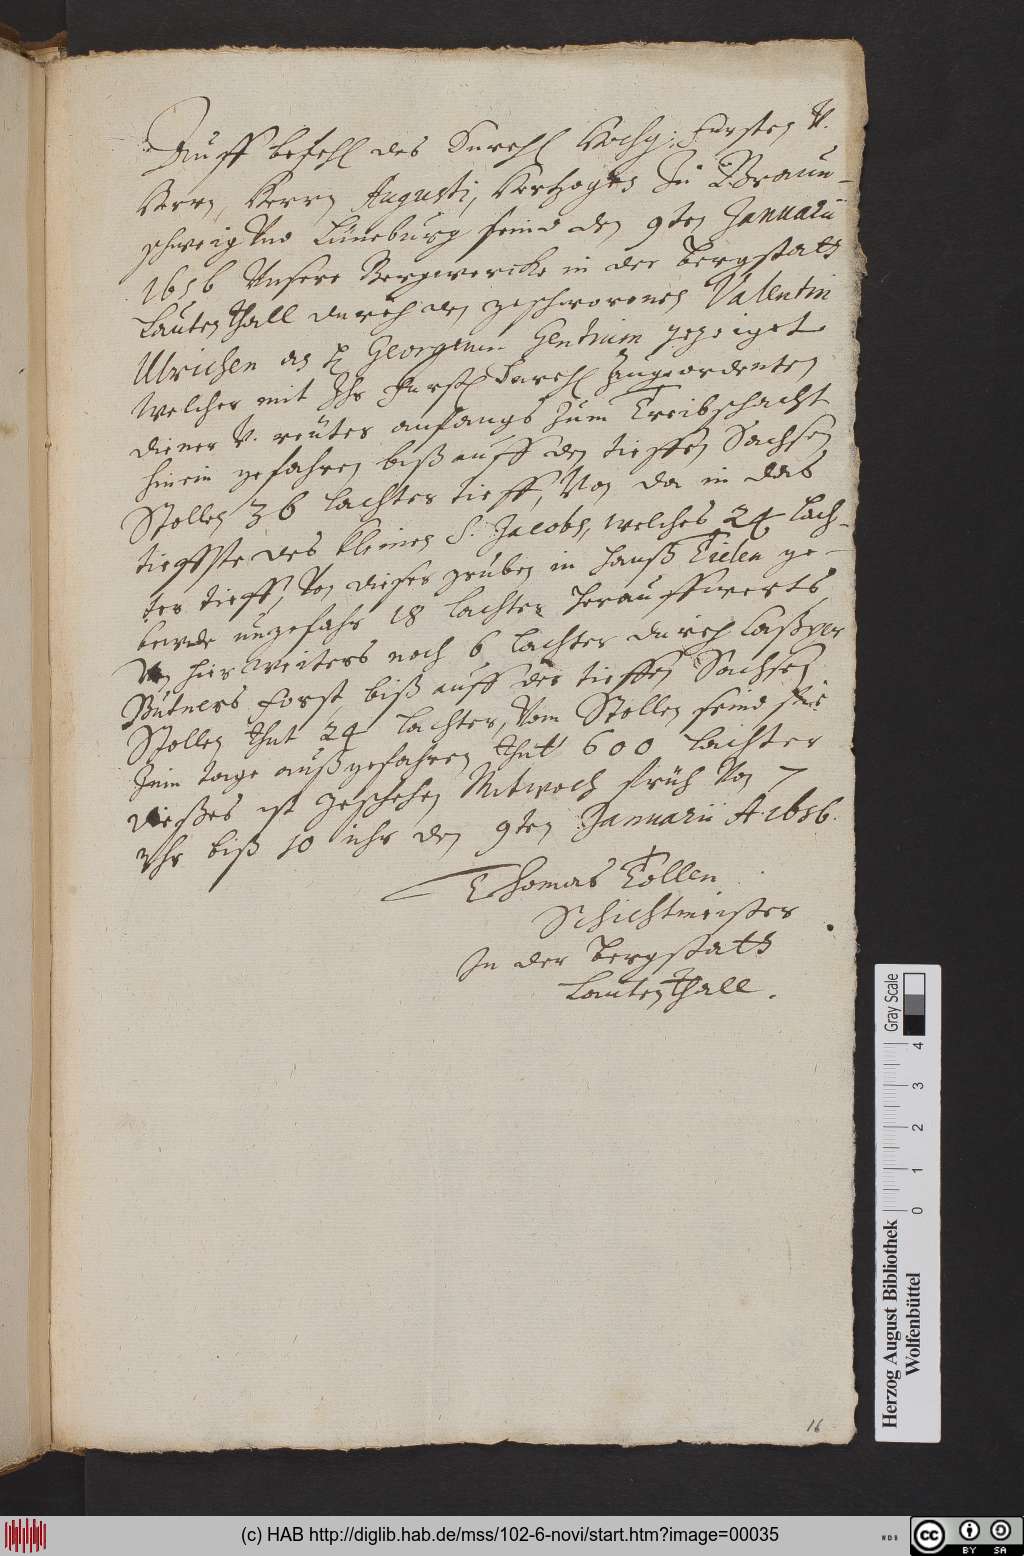 Auff befehl des Durchl Hochg: Fursten v.
Herrn, Herrn Augusti, Hertzogen Zu Braun-
schweig Vnd Lüneburg seind den 9ten Januarii
1656 Vnsere Bergwercke in der Bergstatt
Lautenthall durch den geschworenen Valentin
Ulrichen an Georgium Gentzium gezeiget
Welcher mit Ihr Furstl Durchl angeordenten
diener v. reuter anfangs Zum Treibschacht
hinein gefahren biß auff den tieffen Sachsen
Stollen 36 lachter tieff, Von da in das
tieffste des kleinen S. Jacobs, welches 24 lach-
ter tieff, Von dieser gruben in Hanß Tielen ge-
beude ungefahr 18 lachter herauffwerts,
Von hir weiters noch 6 lachter durch Caßper
Bütners Forst, biß auff der tieffen Sachsen
Stollen thut 24 lachter, Vom Stollen seind sie
Zum tage außgefahren thut 600 lachter
dießes ist geschehen Mitwoch früh Von 7
Vhr biß 10 uhr den 9ten Januarii A 1656.
Thomas Tollen
Schichtmeister
In der Bergstatt
Lautenthall.
16
Herzog August Bibliothek
Wolfenbüttel
0 1 2 3 4
Gray Scale
(c) HAB http://diglib.hab.de/mss/102-6-novi/start.htm?image=00035
cc BY SA